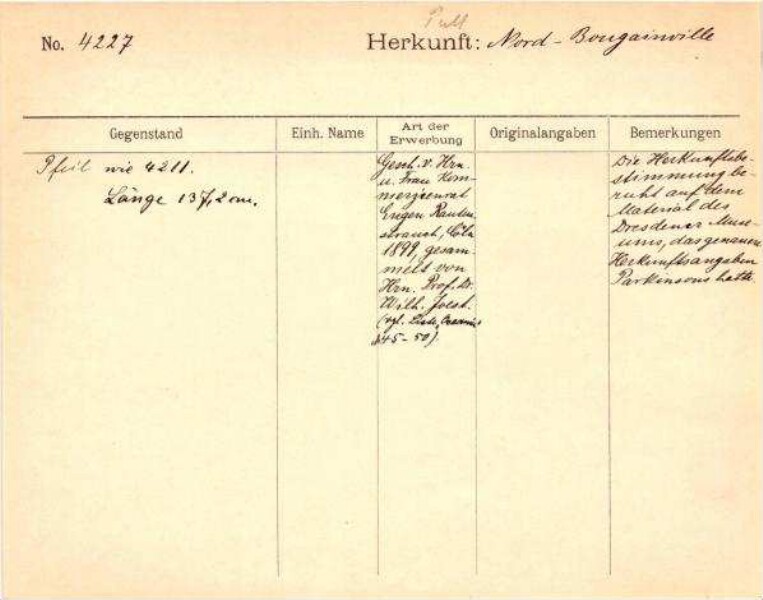 Pull
No. 4227 Herkunft: Nord-Bougainville
Gegenstand Einh. Name Art der Erwerbung Originalangaben Bemerkungen
Pfeil wie 4211.
Länge 137,2 cm.
Gesch. v. Hrn.
u. Frau Kom-
merzienrat
Eugen Rauten-
strauch, Cöln
1899, gesam-
melt von
Hrn. Prof. Dr.
Wilh. Joest.
(vgl. Liste
45-50).
Die Herkunftsbe-
stimmung be-
ruht auf dem
Material des
Dresdener Muse-
ums, das genauere
Herkunftsangaben
Parkinsons hatte.